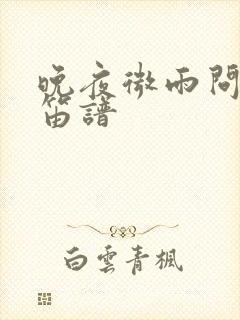 晚夜微雨問
笛譜
白雲青楓